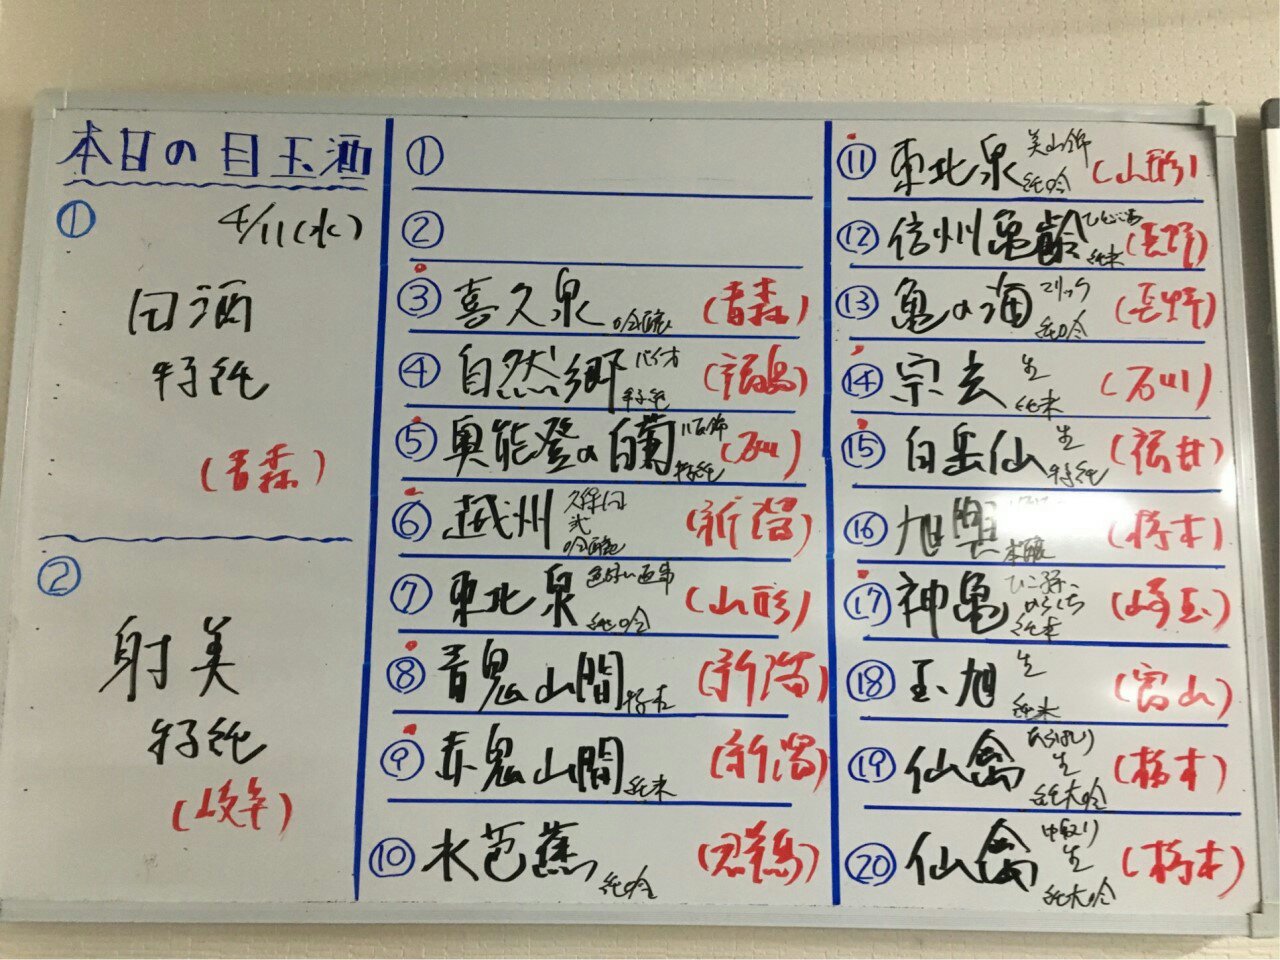 本日の目玉酒
① 4/11(水)
田酒
特純
(青森)
②
射美
特純
(岐阜)
①
②
③ 喜久泉 吟醸 (青森)
④ 自然郷 バイオ 特純 (福島)
⑤ 奥能登の白菊 八反錦 特純 (石川)
⑥ 越州 久保田 弐 吟醸 (新潟)
⑦ 東北泉 純吟 (山形)
⑧ 青鬼山間 特本 (新潟)
⑨ 赤鬼山間 純米 (新潟)
⑩ 水芭蕉 純吟 (群馬)
⑪ 東北泉 美山錦 純吟 (山形)
⑫ 信州亀齢 純米 (長野)
⑬ 亀の海 純吟 (長野)
⑭ 宗玄 生 純米 (石川)
⑮ 白岳仙 生 特純 (福井)
⑯ 旭興 本醸 (栃木)
⑰ 神亀 ひこ孫 純米 (埼玉)
⑱ 玉旭 生 純米 (富山)
⑲ 仙禽 あらばしり 生 純大吟 (栃木)
⑳ 仙禽 中取り 生 純大吟 (栃木)